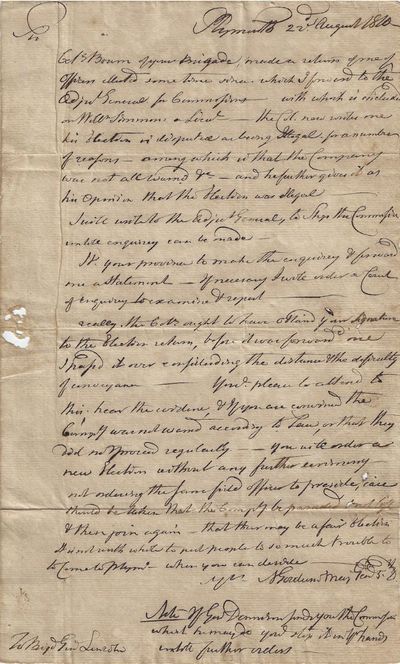 Plymouth 22d August 1810
Sir
Col. Bourn of your Brigade, made a return of one of
Officers Elected some time since which I forward to the
Adjut General for Commissions — with which is included
on Willm Simmons a Lieut — the Col. now writes me
his Election is disputed as being Illegal for a number
of reasons — among which is that the Company
was not all warnd &c — and he further gives it as
his Opinion that the Election was illegal
I will write to the Adjut General, to stop the Commission
untill enquirey can be made —
It your province to make the enquirey & forward
me a Statement — If necessary I will order a Court
of Enquirey to examine & report
really, the Col. ought to have obtaind your signature
to the Election return, before it was forward me
I passd it over considering the distance & the difficulty
of conveyance — You'l please to attend to
this. hear the evidence, & If you are convinced the
Compy was not warnd according to Law, or that they
did not proceed regularly — you will order a
new Election without any further ceremony
not ordering the same field officer to preside, care
should be taken that the Compy be paraded
& then join again — that ther may be a fair Election
Its not worth while to put people to so much trouble to
to Come to Plymo when you can decide —
Note If Gen Donnison sends you the Commission
which he may do you'l stop it in yr hands
untill further orders
To Brigd Genl Lincoln